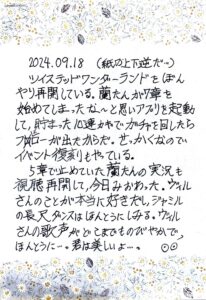 2024.09.18 (紙の上下逆だ〜)
ツイステッドワンダーランドもぼん
やり再開している。蘭たんが7章を
始めてしまったな〜と思いアプリを起動
して、貯まった10連かやでガチャを回したら
フロローが出たからだ。せっかくなので
イベント復刻もやっている。
5章で止めていた蘭たんの実況も
視聴再開して、今日みおわった。ヴィル
さんのことが本当に好きだし、ジャミル
の長尺ダンスはほんとうにしみる。ヴィル
さんの歌声がどこまでものびやかで、
ほんとうに…。君は美しいよ…。